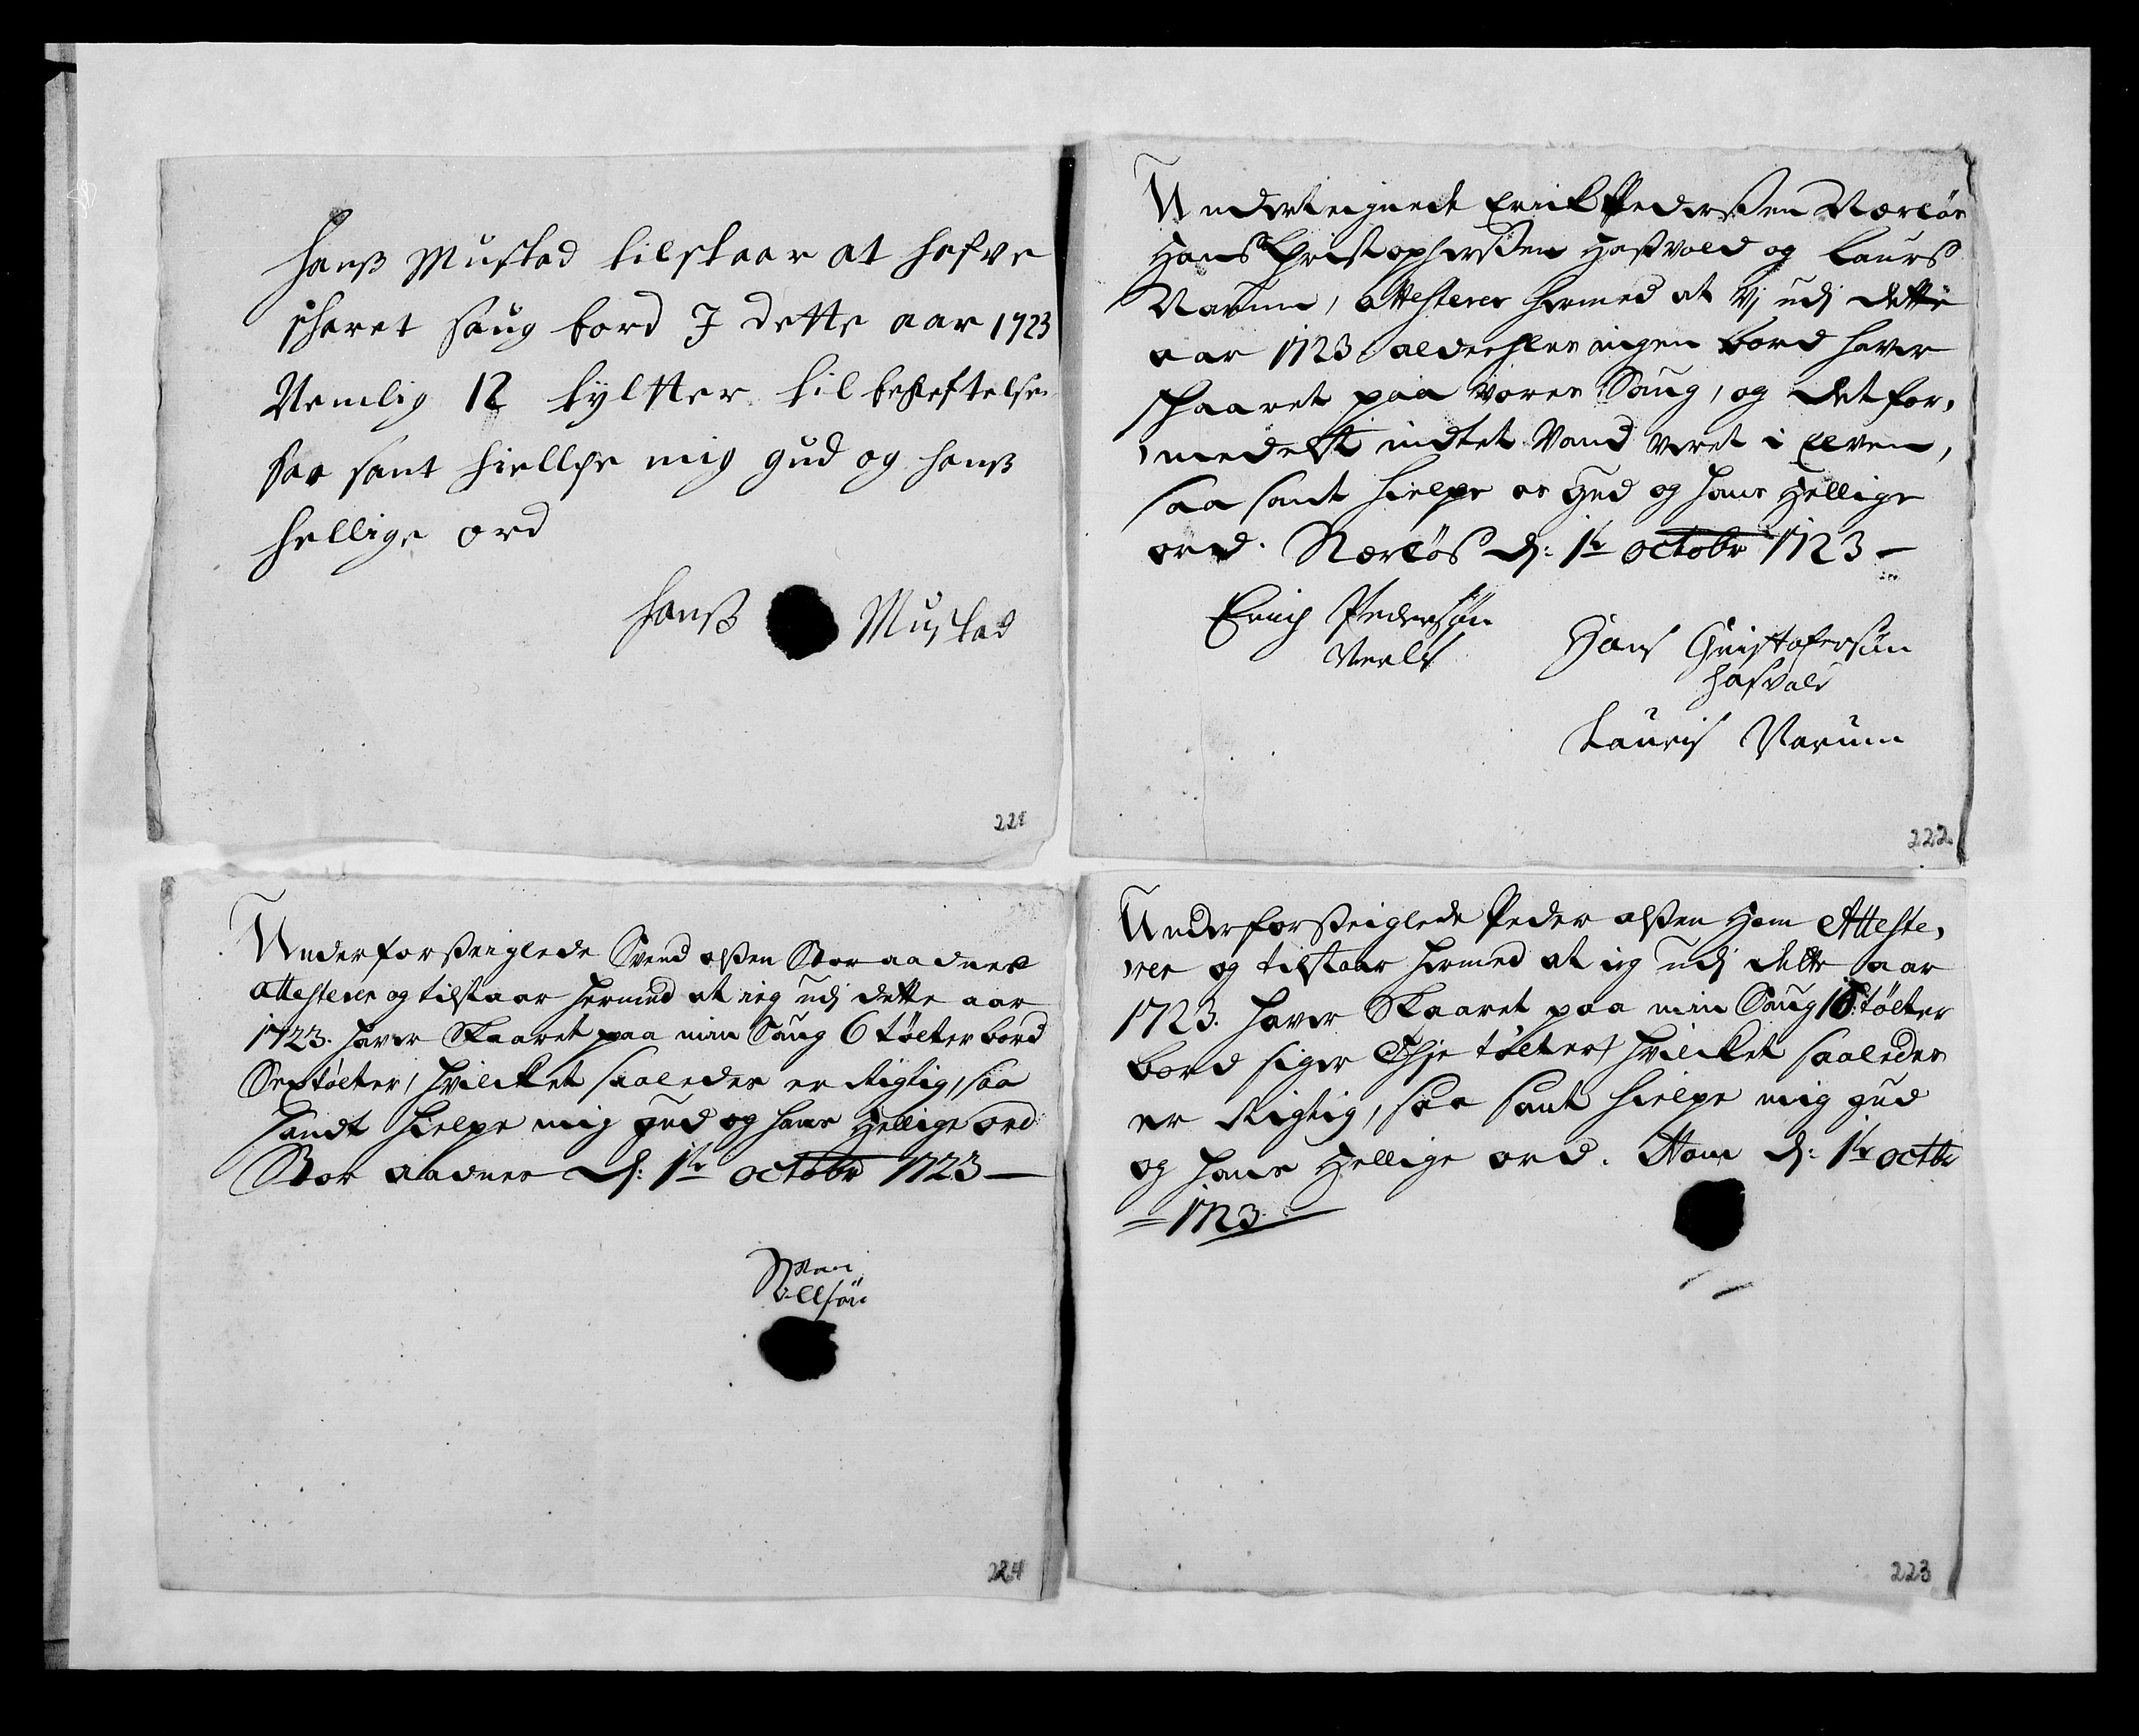 Hanß Mustad tilstaar at hafve
skaret saug bord I dette aar 1723
Nemlig 12 tyltter til bekreftelse
saa sant hiellpe mig gud og hanß
hellige ord
Hanß Mustad
221
Underteignede Erick Pederßen Nerløs
Hans Christopherßen Haßvold og Laurs
Narum, attesterer hermed at Vj udj dette
aar 1723 aldeehles ingen bord haver
skaaret paa vores Saug, og det for,
medelst indtet Vand veret i Elven,
saa sant hielpe os Gud og hans Hellige
ord. Nerløs d: 1te octobr 1723
Erich Pedersøn
Hans Christofersøn
Hasvold
Lauris Narum
222
Underforßeiglede Svend olßen Stor aadnes
attesterer og tilstaar hermed at ieg udj dette aar
1723. haver Skaaret paa min Saug 6 tølter bord
Sex tølter, hvilcket saaledes er Rigtig, saa
sandt hielpe mig Gud og hans Hellige ord
Stor aadnes d: 1te octobr 1723
Sven
ollsøn
224
Underforßeiglede Peder olßen Hom Atteste,
rer og tilstaar hermed at ieg udj dette aar
1723. haver Skaaret paa min Saug tølter
bord siger tølter hvilcket saaledes
er Rigtig, saa sant hielpe mig gud
og hans Hellige ord. Hom d: 1te octbr
1723
223